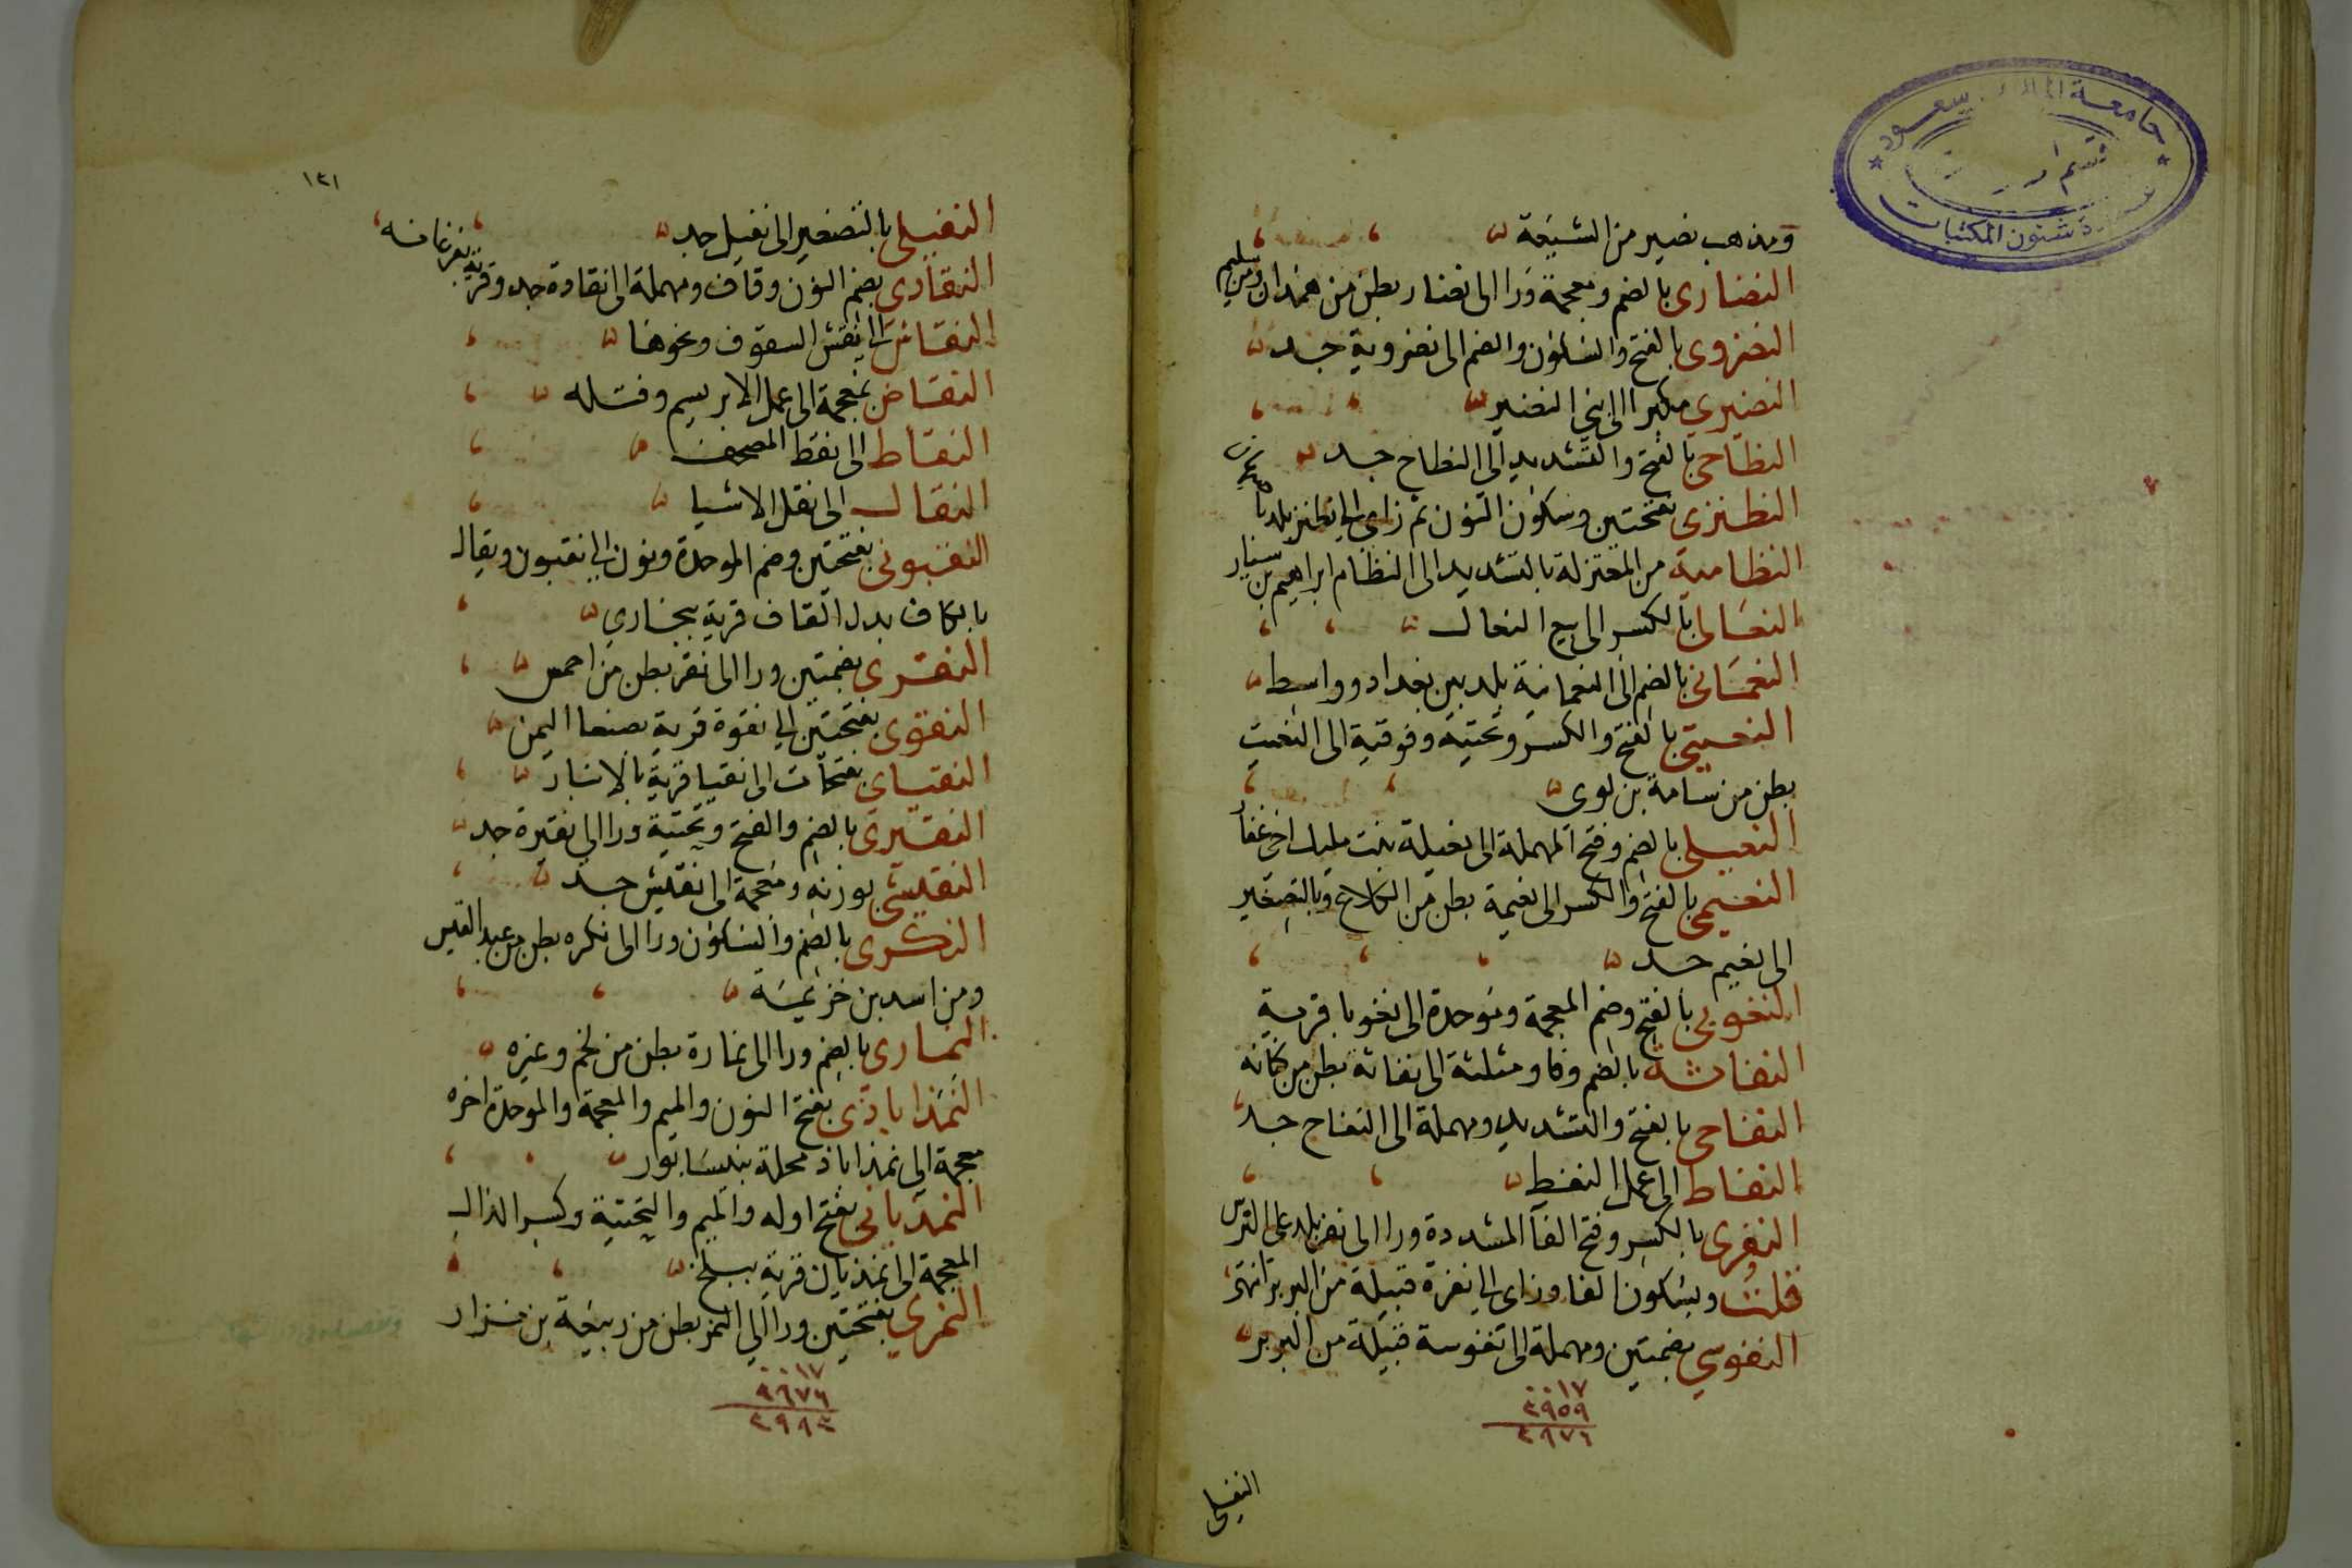 جامعة الملك سعود
قسم
شئون المكتبات
ومذهب نصير من الشيعة
النضارى بالضم ومعجمة ورا الى نضار بطن من همدان ومن سليم
النضروى بالفتح والسكون والضم الى نضروية جد
النضيرى مكبرا الى بنى النضير
النطاحى بالفتح والتشديد الى النطاح جد
النطنزى بفتحتين وسكون النون ثم زاى الى نطنز بلد باصبهان
النظامية من المعتزلة بالتشديد الى النظام ابراهيم بن سيار
النعالى بالكسر الى بيع النعال
النعمانى بالضم الى النعمانية بلد بين بغداد وواسط
النعيتى بالفتح والكسر وتحتية وفوقية الى النعيت
بطن من سامة بن لوى
النعيلى بالضم وفتح المهملة الى نعيلة بنت مليك اخى غفار
النعيمى بالفتح والكسر الى نعيمة بطن من الكلاع وبالتصغير
الى نعيم جد
النغوبى بالفتح وضم المعجمة وموحدة الى نغوبا قرية
النفاثة بالضم وفا ومثلثة الى نفاثة بطن من كنانه
النفاحى بالفتح والتشديد ومهملة الى النفاح جد
النفاط الى عمل النفط
النفرى بالكسر وفتح الفا المشددة ورا الى نفر بلد على النرس
قلت وبسكون الفا وزاى الى نفزة قبيلة من البربر انتهى
النفوسي بضمتين ومهملة الى نفوسة قبيلة من البربر
٠٠١٧
٢٩٥٩
٢٩٧٦
النفيلى
١٢١
النفيلى بالتصغير الى نفيل جد
النقادى بضم النون وقاف ومهملة الى نقادة جد وقرية بفرغانه
النقاش الى نقش السقوف ونحوها
النقاض بمعجمة الى عمل الابريسم وفتله
النقاط الى نقط المصحف
النقال الى نقل الاشيا
النقبونى بفتحتين وضم الموحدة ونون الى نقبون ويقال
بالكاف بدل القاف قرية ببخارى
النقرى بضمتين ورا الى نقر بطن من احمس
النقوى بفتحتين الى نقوة قرية بصنعا اليمن
النقياى بفتحات الى نقيا قرية بالانبار
النقيرى بالضم والفتح وتحتية ورا الى نقيرة جد
النقيشى بوزنه ومعجمة الى نقيش جد
النكرى بالضم والسكون ورا الى نكره بطن من عبد القيس
ومن اسد بن خزيمة
النمارى بالضم ورا الى نمارة بطن من لخم وغيره
النمذاباذى بفتح النون والميم والمعجمة والموحدة اخره
معجمة الى نمذاباذ محلة بنيسابور
النمذيانى بفتح اوله والميم والتحتية وكسر الذال
المعجمة الى نمذيان قرية ببلخ
النمري بفتحتين ورا الى النمر بطن من ربيعة بن نزار
٠٠١٧
٢٩٧٦
٢٩٩٣